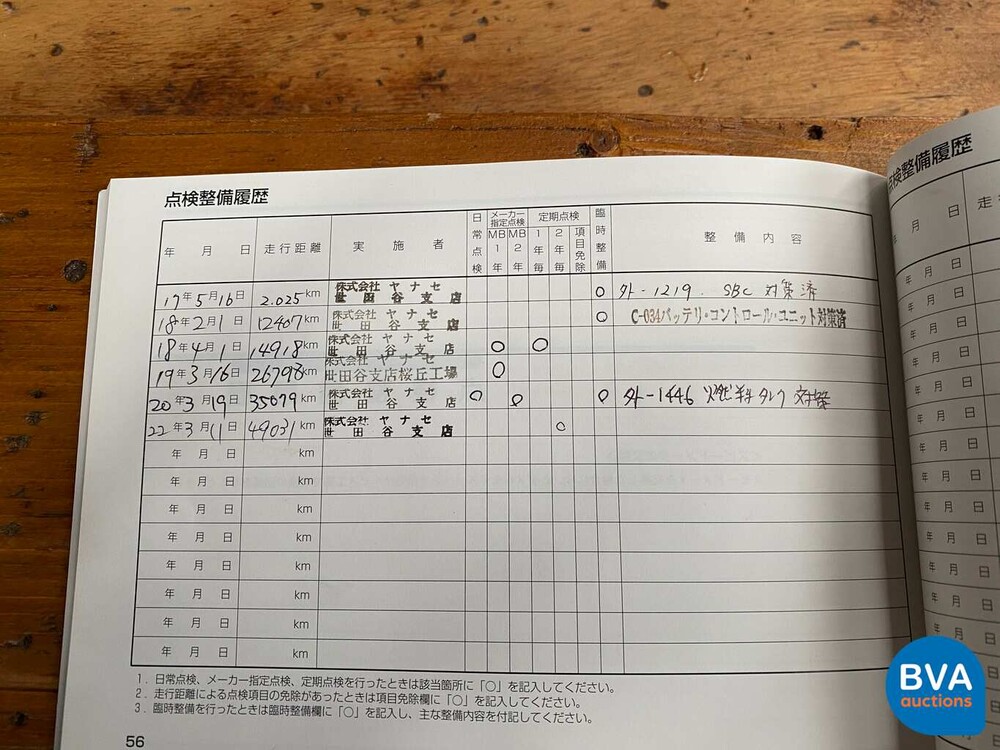 点検整備履歴
年 月 日 走行距離 実施者 日常点検 メーカー指定点検 MB1年 MB2年 定期点検 1年毎 2年毎 項目免除 臨時整備 整備内容
17年5月16日 2.025km 株式会社ヤナセ 世田谷支店 ○ 外-1219. SBC 対策済
18年2月1日 12407km 株式会社ヤナセ 世田谷支店 ○ C-034バッテリ・コントロール・ユニット対策済
18年4月1日 14918km 株式会社ヤナセ 世田谷支店 ○ ○
19年3月16日 26798km 株式会社ヤナセ 世田谷支店桜丘工場 ○
20年3月19日 35079km 株式会社ヤナセ 世田谷支店 ○ ○ ○ 外-1446
22年3月11日 49031km 株式会社ヤナセ 世田谷支店 ○
年 月 日 km
年 月 日 km
年 月 日 km
年 月 日 km
年 月 日 km
年 月 日 km
年 月 日 km
年 月 日 km
1.日常点検、メーカー指定点検、定期点検を行ったときは該当箇所に「○」を記入してください。
2.走行距離による点検項目の免除があったときは項目免除欄に「○」を記入してください。
3.臨時整備を行ったときは臨時整備欄に「○」を記入し、主な整備内容を付記してください。
56
点検整備履歴
月 日 走
年 月 日
年 月 日
年 月 日
年 月 日
年 月 日
年 月 日
年 月 日
年 月 日
年 月 日
年 月 日
年 月 日
年 月 日
年 月 日
BVA
auctions